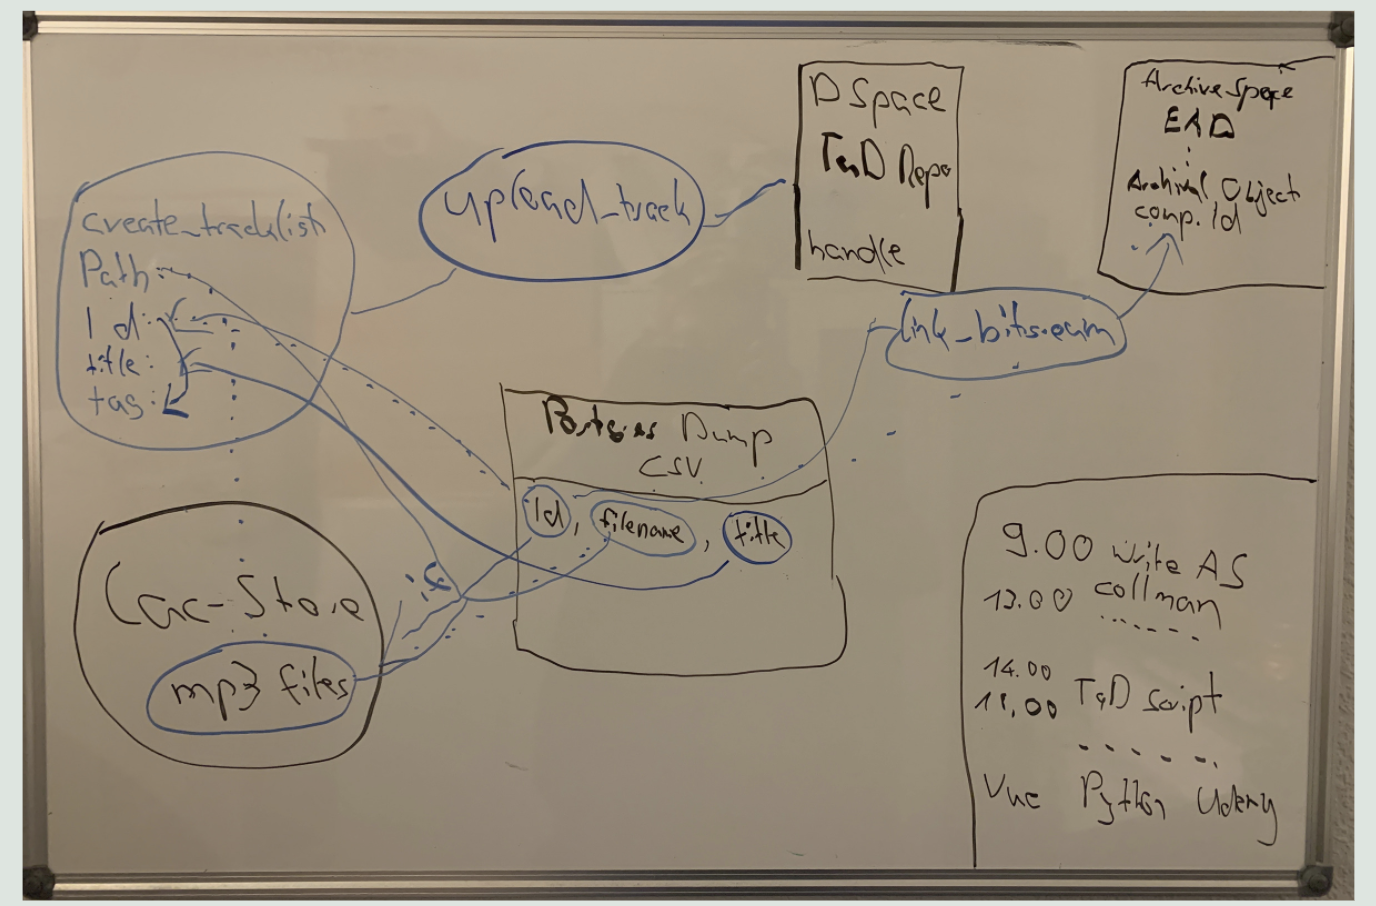 create_tracklist
Path:
Id:
title:
tag:
upload_track
DSpace
TaD Repo
handle
ArchiveSpace
EAD
Archival Object
comp.Id
link_bitsream
Dump
CSV
Id, filename, title
if
Cac-Store
mp3 files
9.00 write AS
13.00 collman
14.00
TaD Script
Vue Python Udemy